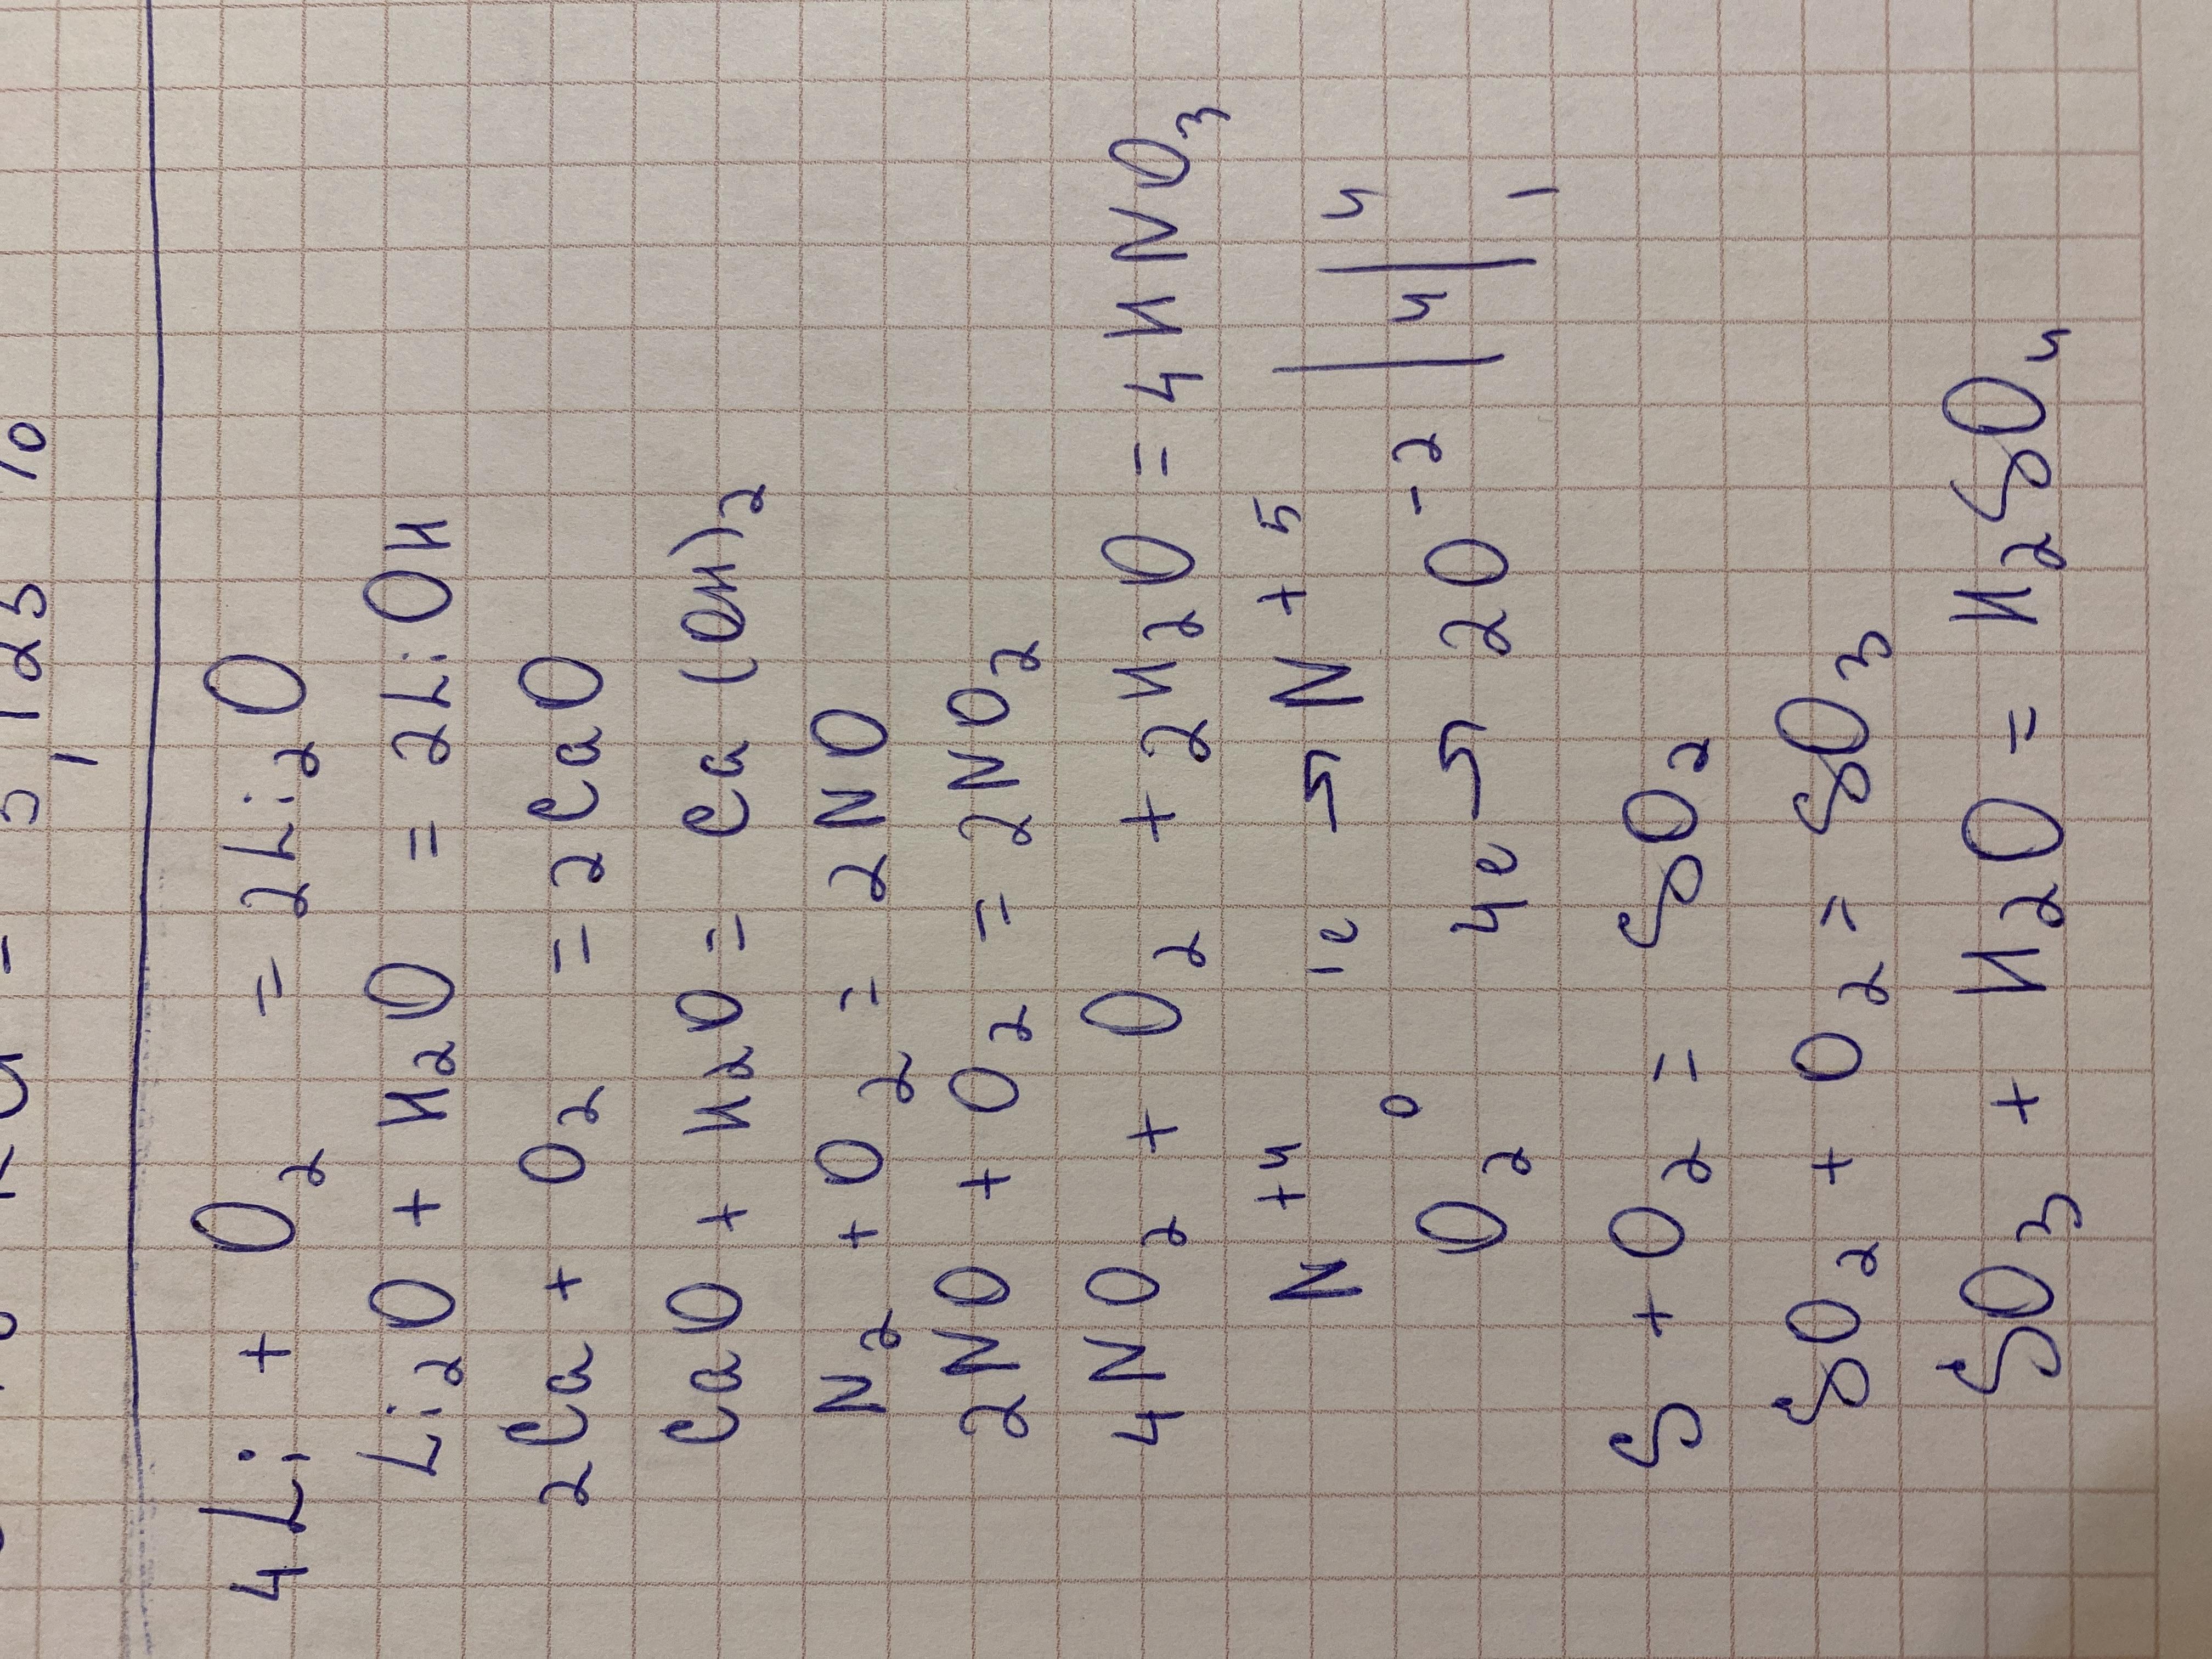 4Li + O₂ = 2Li₂O
Li₂O + H₂O = 2LiOH
2Ca + O₂ = 2CaO
CaO + H₂O = Ca(OH)₂
N₂ + O₂ = 2NO
2NO + O₂ = 2NO₂
4NO₂ + O₂ + 2H₂O = 4HNO₃
N⁺⁴ 1e → N⁺⁵ | | 4
O₂⁰ 4e → 2O⁻² | 4 | 1
S + O₂ = SO₂
SO₂ + O₂ = SO₃
SO₃ + H₂O = H₂SO₄